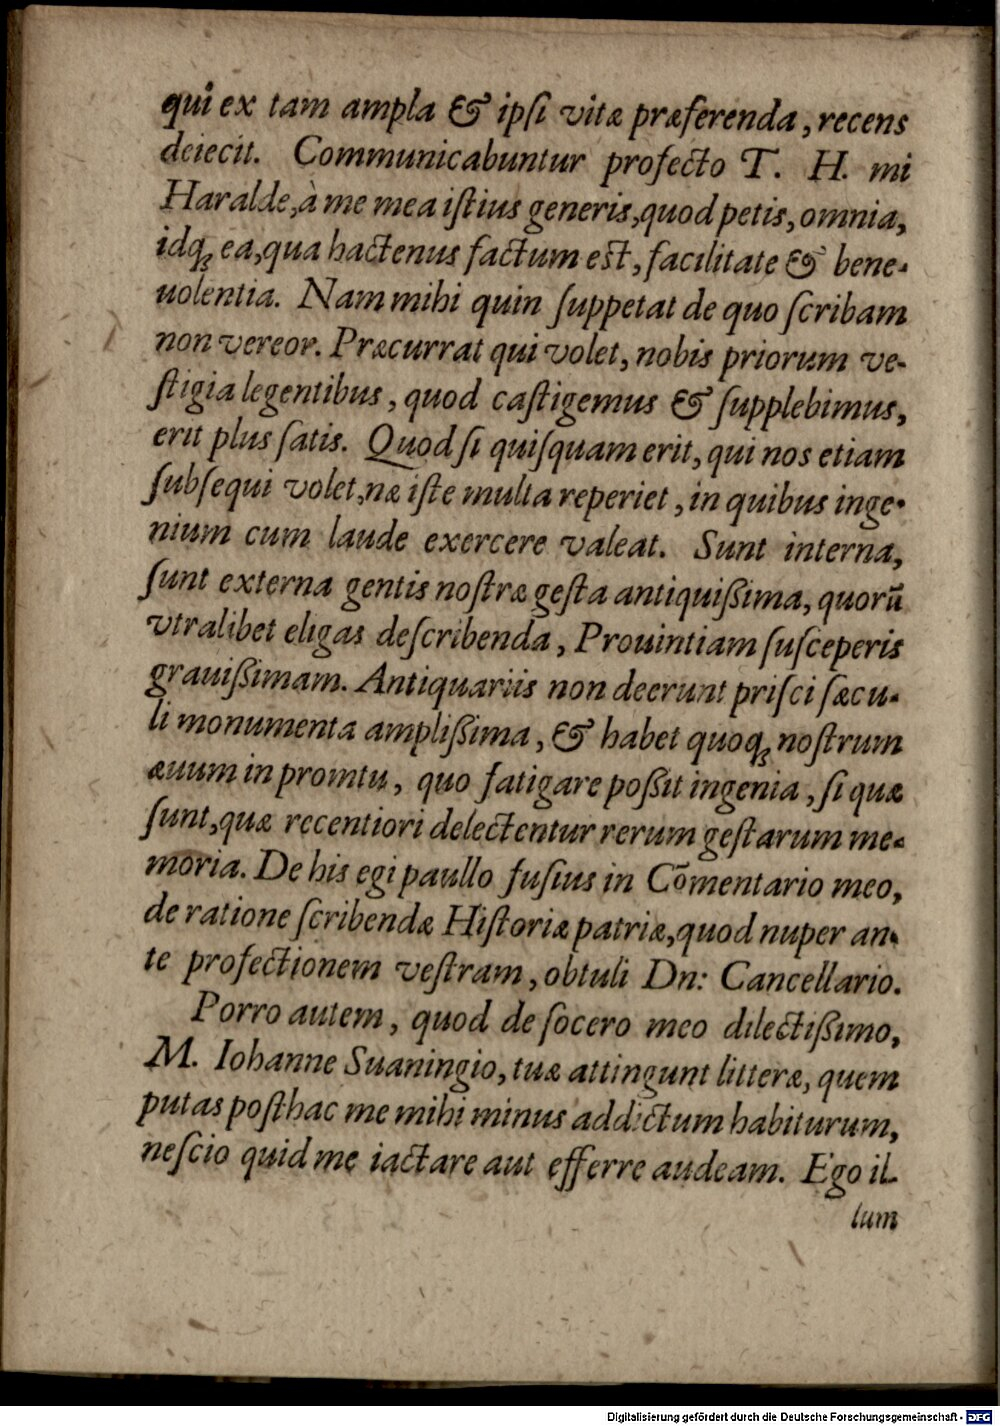 qui ex tam ampla & ipſi vitæ præferenda, recens
deiecit. Communicabuntur profecto T. H. mi
Haralde, à me mea iſtius generis, quod petis, omnia,
idqꝫ ea, qua hactenus factum eſt, facilitate & bene-
uolentia. Nam mihi quin ſuppetat de quo ſcribam
non vereor. Præcurrat qui volet, nobis priorum ve-
ſtigia legentibus, quod caſtigemus & ſupplebimus,
erit plus ſatis. Quod ſi quiſquam erit, qui nos etiam
ſubſequi volet, næ iſte multa reperiet, in quibus inge-
nium cum laude exercere valeat. Sunt interna,
ſunt externa gentis noſtræ geſta antiquißima, quorũ
vtralibet eligas deſcribenda, Prouintiam ſuſceperis
grauißimam. Antiquariis non deerunt priſci ſæcu-
li monumenta amplißima, & habet quoqꝫ noſtrum
æuum in promtu, quo fatigare poßit ingenia, ſi quæ
ſunt, quæ recentiori delectentur rerum geſtarum me-
moria. De his egi paullo fuſius in Cõmentario meo,
de ratione ſcribendæ Hiſtoriæ patriæ, quod nuper an-
te profectionem veſtram, obtuli Dn: Cancellario.
Porro autem, quod de ſocero meo dilectißimo,
M. Iohanne Suaningio, tuæ attingunt litteræ, quem
putas poſthac me mihi minus addictum habiturum,
neſcio quid me iactare aut efferre audeam. Ego il-
lum
Digitalisierung gefördert durch die Deutsche Forschungsgemeinschaft - DFG